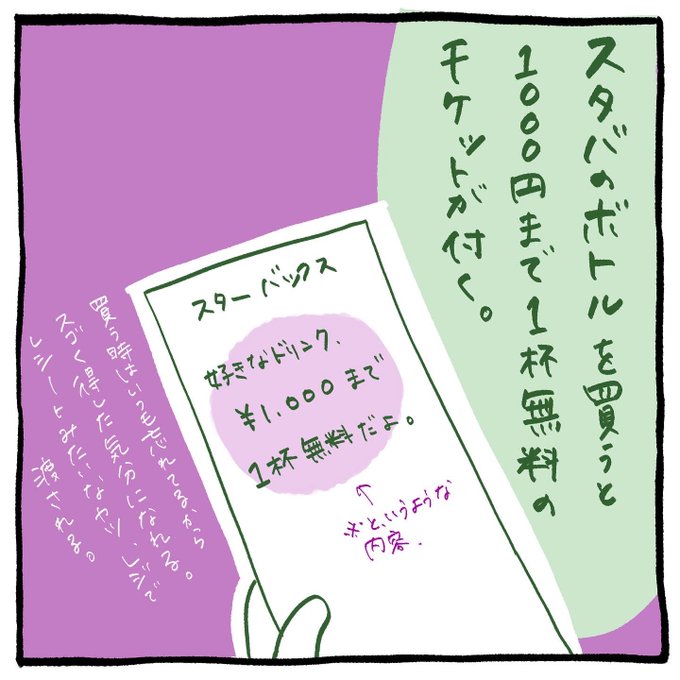 スタバのボトルを買うと
1000円まで1杯無料の
チケットが付く。
スターバックス
好きなドリンク、
¥1,000まで
1杯無料だよ。
↑
※というような
内容.
買う時はいつも忘れてるから
スゴく得した気分になれる。
レシートみたいなヤツ。レジで
渡される。